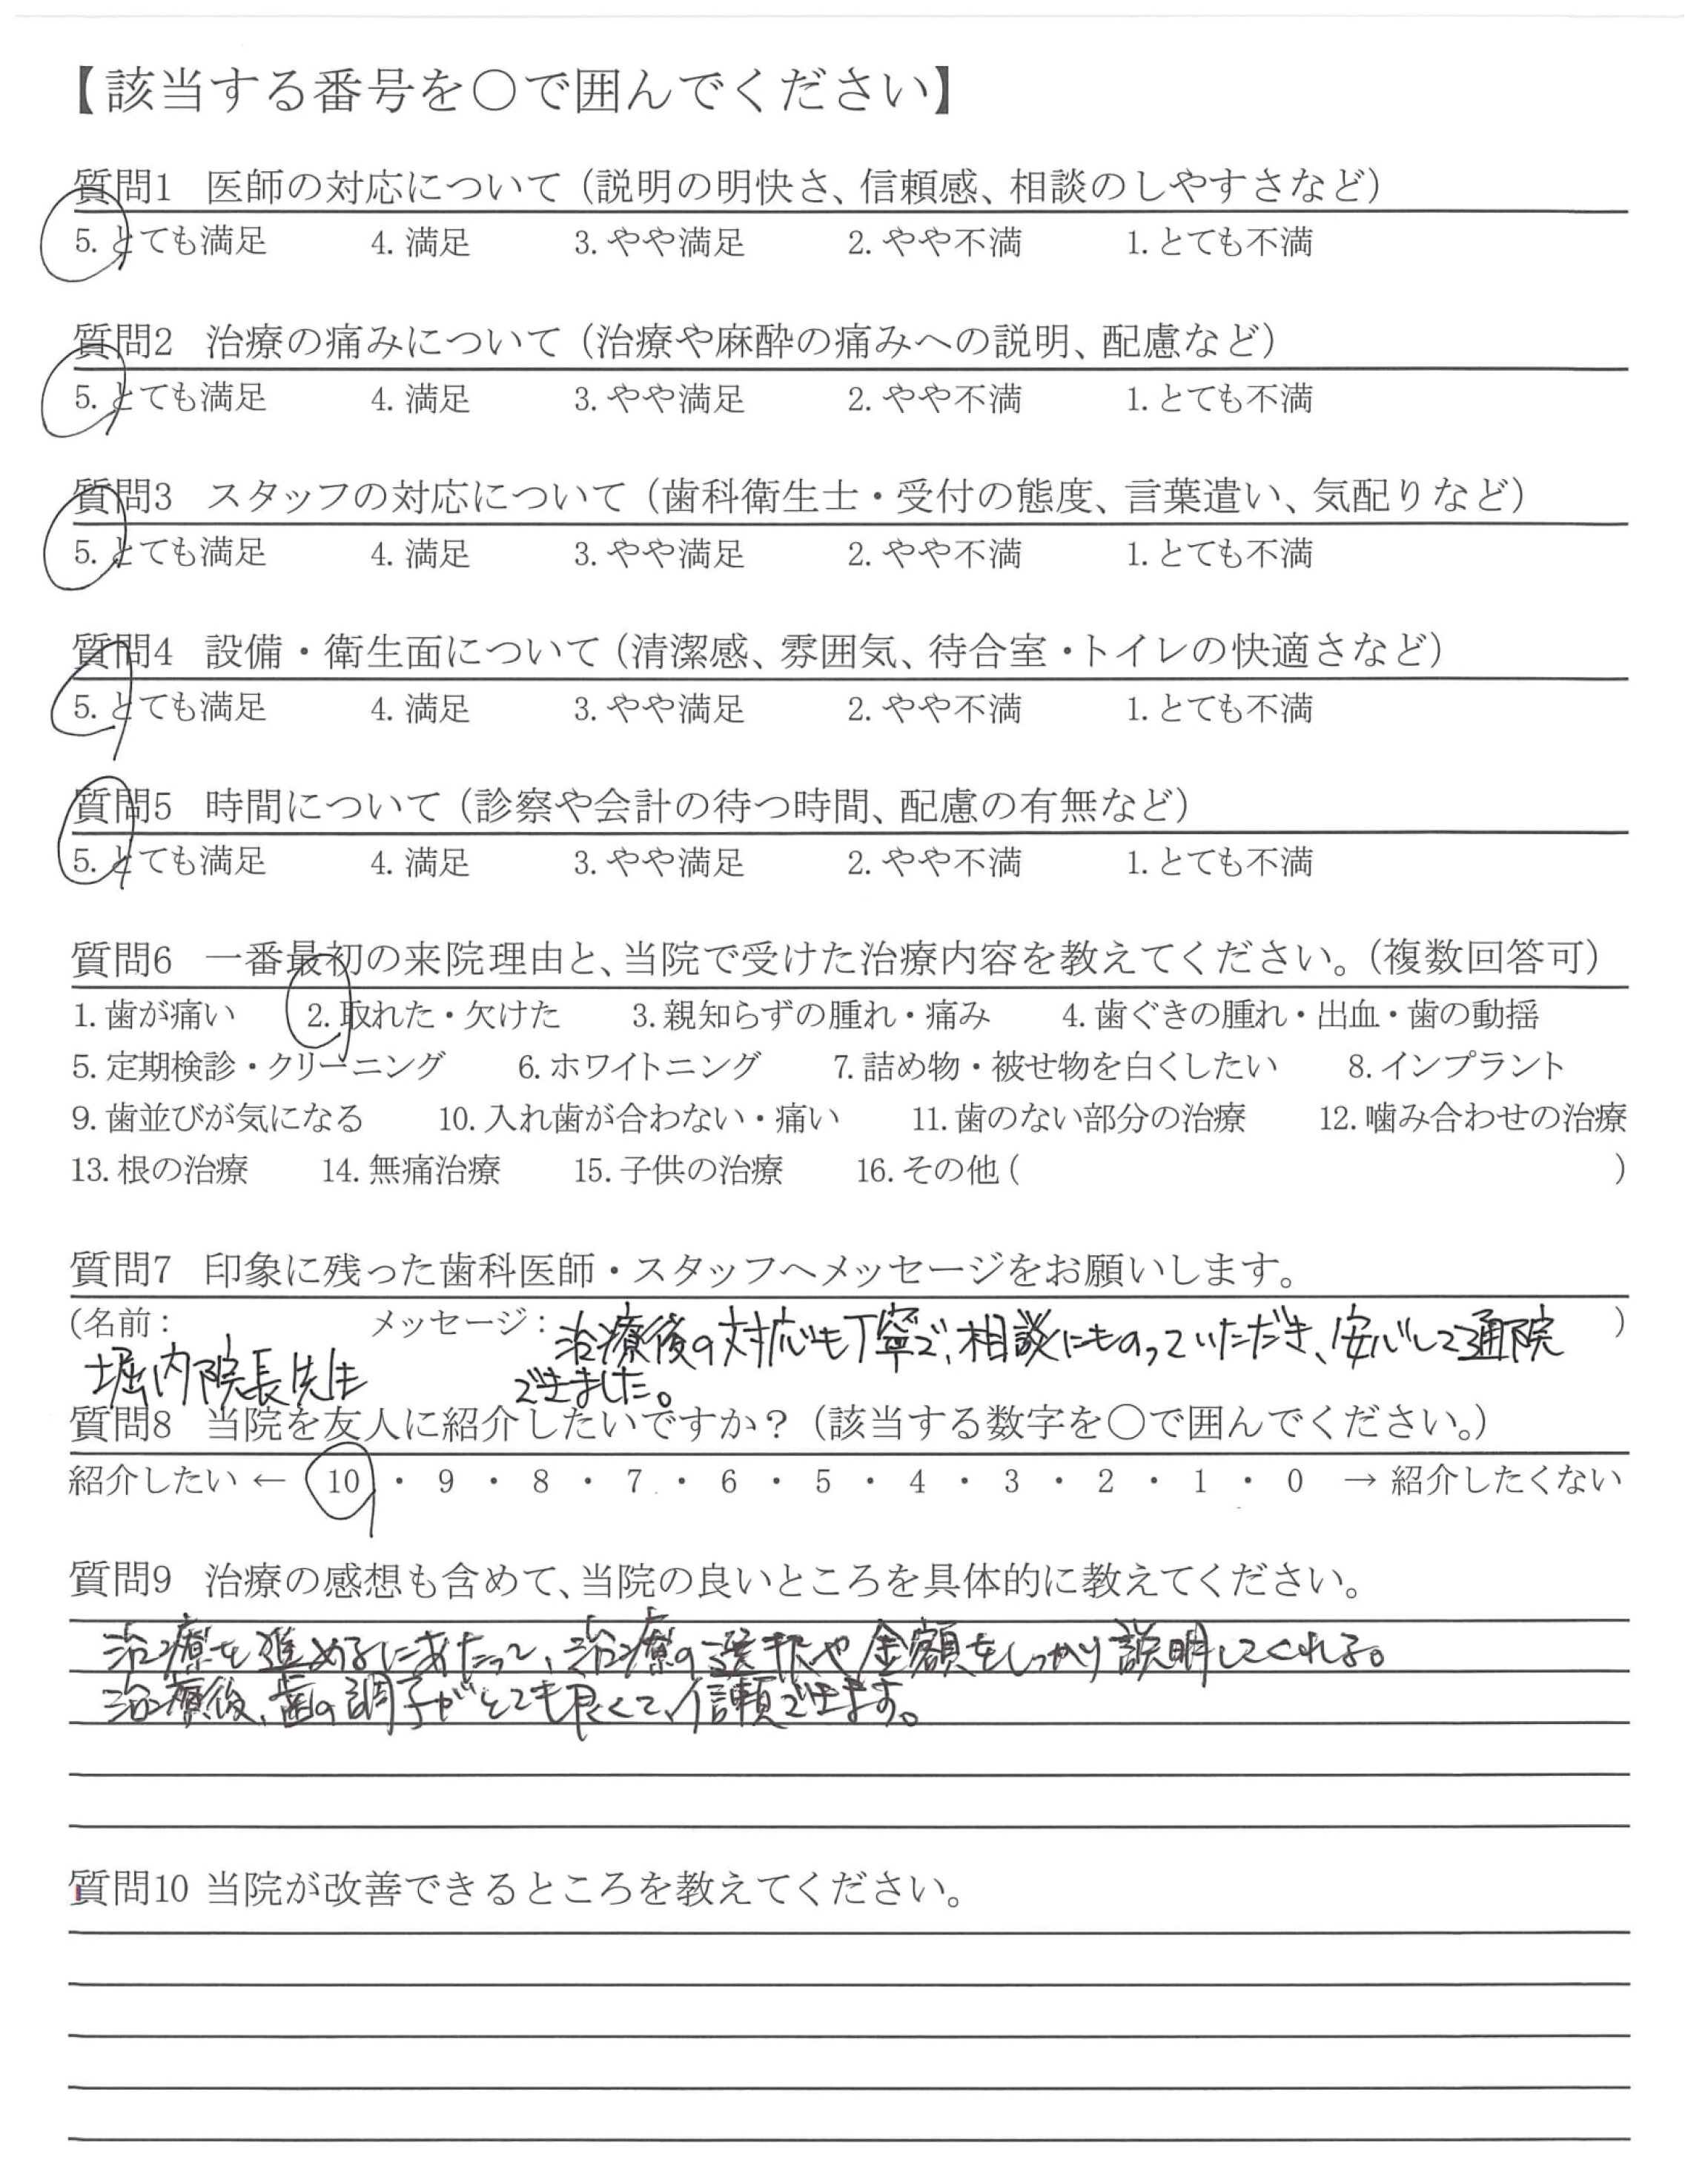 【該当する番号を○で囲んでください】
質問1 医師の対応について（説明の明快さ、信頼感、相談のしやすさなど）
5. とても満足 4. 満足 3. やや満足 2. やや不満 1. とても不満
質問2 治療の痛みについて（治療や麻酔の痛みへの説明、配慮など）
5. とても満足 4. 満足 3. やや満足 2. やや不満 1. とても不満
質問3 スタッフの対応について（歯科衛生士・受付の態度、言葉遣い、気配りなど）
5. とても満足 4. 満足 3. やや満足 2. やや不満 1. とても不満
質問4 設備・衛生面について（清潔感、雰囲気、待合室・トイレの快適さなど）
5. とても満足 4. 満足 3. やや満足 2. やや不満 1. とても不満
質問5 時間について（診察や会計の待つ時間、配慮の有無など）
5. とても満足 4. 満足 3. やや満足 2. やや不満 1. とても不満
質問6 一番最初の来院理由と、当院で受けた治療内容を教えてください。（複数回答可）
1. 歯が痛い 2. 取れた・欠けた 3. 親知らずの腫れ・痛み 4. 歯ぐきの腫れ・出血・歯の動揺
5. 定期検診・クリーニング 6. ホワイトニング 7. 詰め物・被せ物を白くしたい 8. インプラント
9. 歯並びが気になる 10. 入れ歯が合わない・痛い 11. 歯のない部分の治療 12. 噛み合わせの治療
13. 根の治療 14. 無痛治療 15. 子供の治療 16. その他（ ）
質問7 印象に残った歯科医師・スタッフへメッセージをお願いします。
（名前： メッセージ：治療後の対応も丁寧で、相談にものっていただき、安心して通院 ）
堀内院長先生 できました。
質問8 当院を友人に紹介したいですか？（該当する数字を○で囲んでください。）
紹介したい ← 10 ・ 9 ・ 8 ・ 7 ・ 6 ・ 5 ・ 4 ・ 3 ・ 2 ・ 1 ・ 0 → 紹介したくない
質問9 治療の感想も含めて、当院の良いところを具体的に教えてください。
治療を進めるにあたって、治療の選択や金額をしっかり説明してくれる。
治療後、歯の調子がとても良くて、信頼できます。
質問10 当院が改善できるところを教えてください。